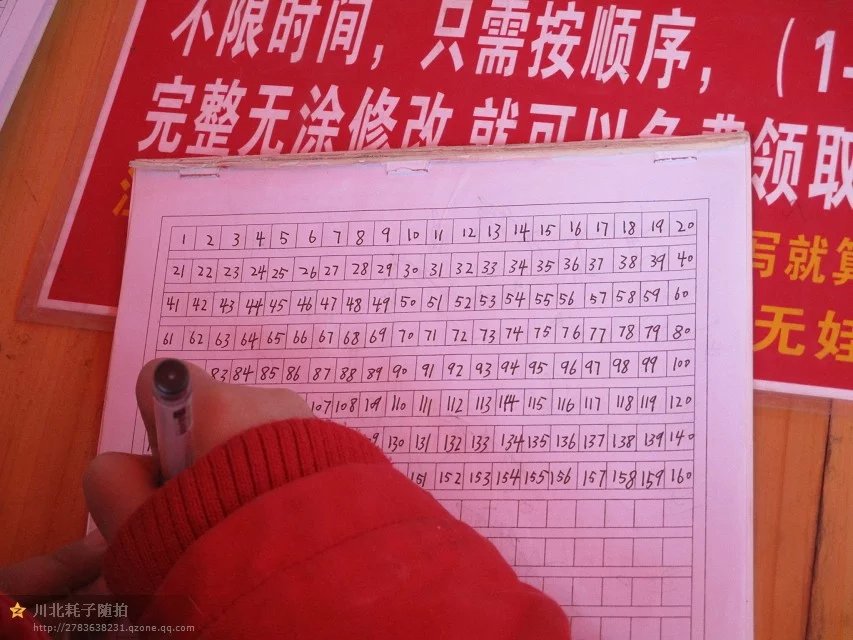 不限时间，只需按顺序，（1-
完整无涂修改就可以免费领取
写就算
无娃
1 2 3 4 5 6 7 8 9 10 11 12 13 14 15 16 17 18 19 20
21 22 23 24 25 26 27 28 29 30 31 32 33 34 35 36 37 38 39 40
41 42 43 44 45 46 47 48 49 50 51 52 53 54 55 56 57 58 59 60
61 62 63 64 65 66 67 68 69 70 71 72 73 74 75 76 77 78 79 80
83 84 85 86 87 88 89 90 91 92 93 94 95 96 97 98 99 100
107 108 109 110 111 112 113 114 115 116 117 118 119 120
130 131 132 133 134 135 136 137 138 139 140
151 152 153 154 155 156 157 158 159 160
川北耗子随拍
http://2783638231.qzone.qq.com